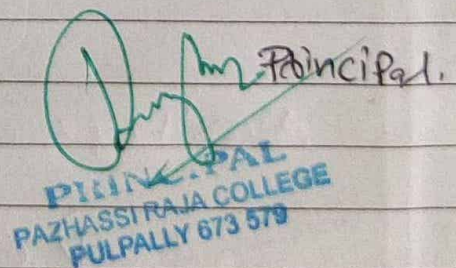 Principal.
PRINCIPAL
PAZHASSI RAJA COLLEGE
PULPALLY 673 579